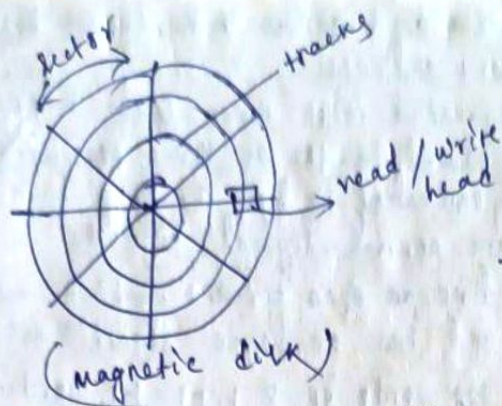 sector
tracks
read / write
head
(magnetic disk)